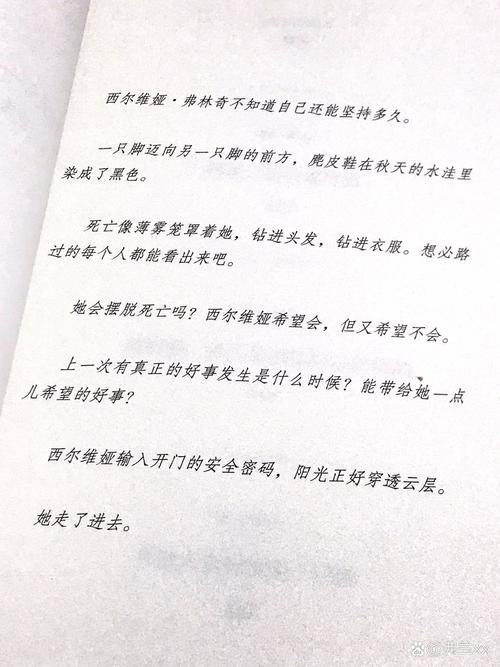 西尔维娅·弗林奇不知道自己还能坚持多久。
一只脚迈向另一只脚的前方，麂皮鞋在秋天的水洼里
染成了黑色。
死亡像薄雾笼罩着她，钻进头发，钻进衣服。想必路
过的每个人都能看出来吧。
她会摆脱死亡吗？西尔维娅希望会，但又希望不会。
上一次有真正的好事发生是什么时候？能带给她一点
儿希望的好事？
西尔维娅输入开门的安全密码，阳光正好穿透云层。
她走了进去。